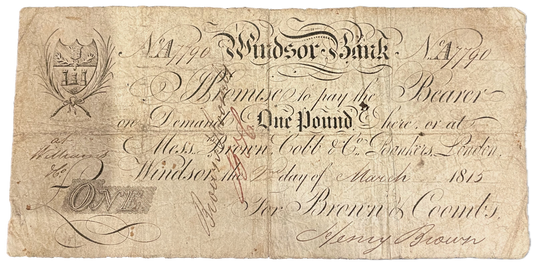 No. A7790 Windsor Bank No. A7790
I Promise to pay the Bearer
on Demand One Pound here or at
Messrs. Brown, Cobb & Co. Bankers, London.
Windsor the day of March 1815
ONE For Brown & Coombs,
Henry Brown